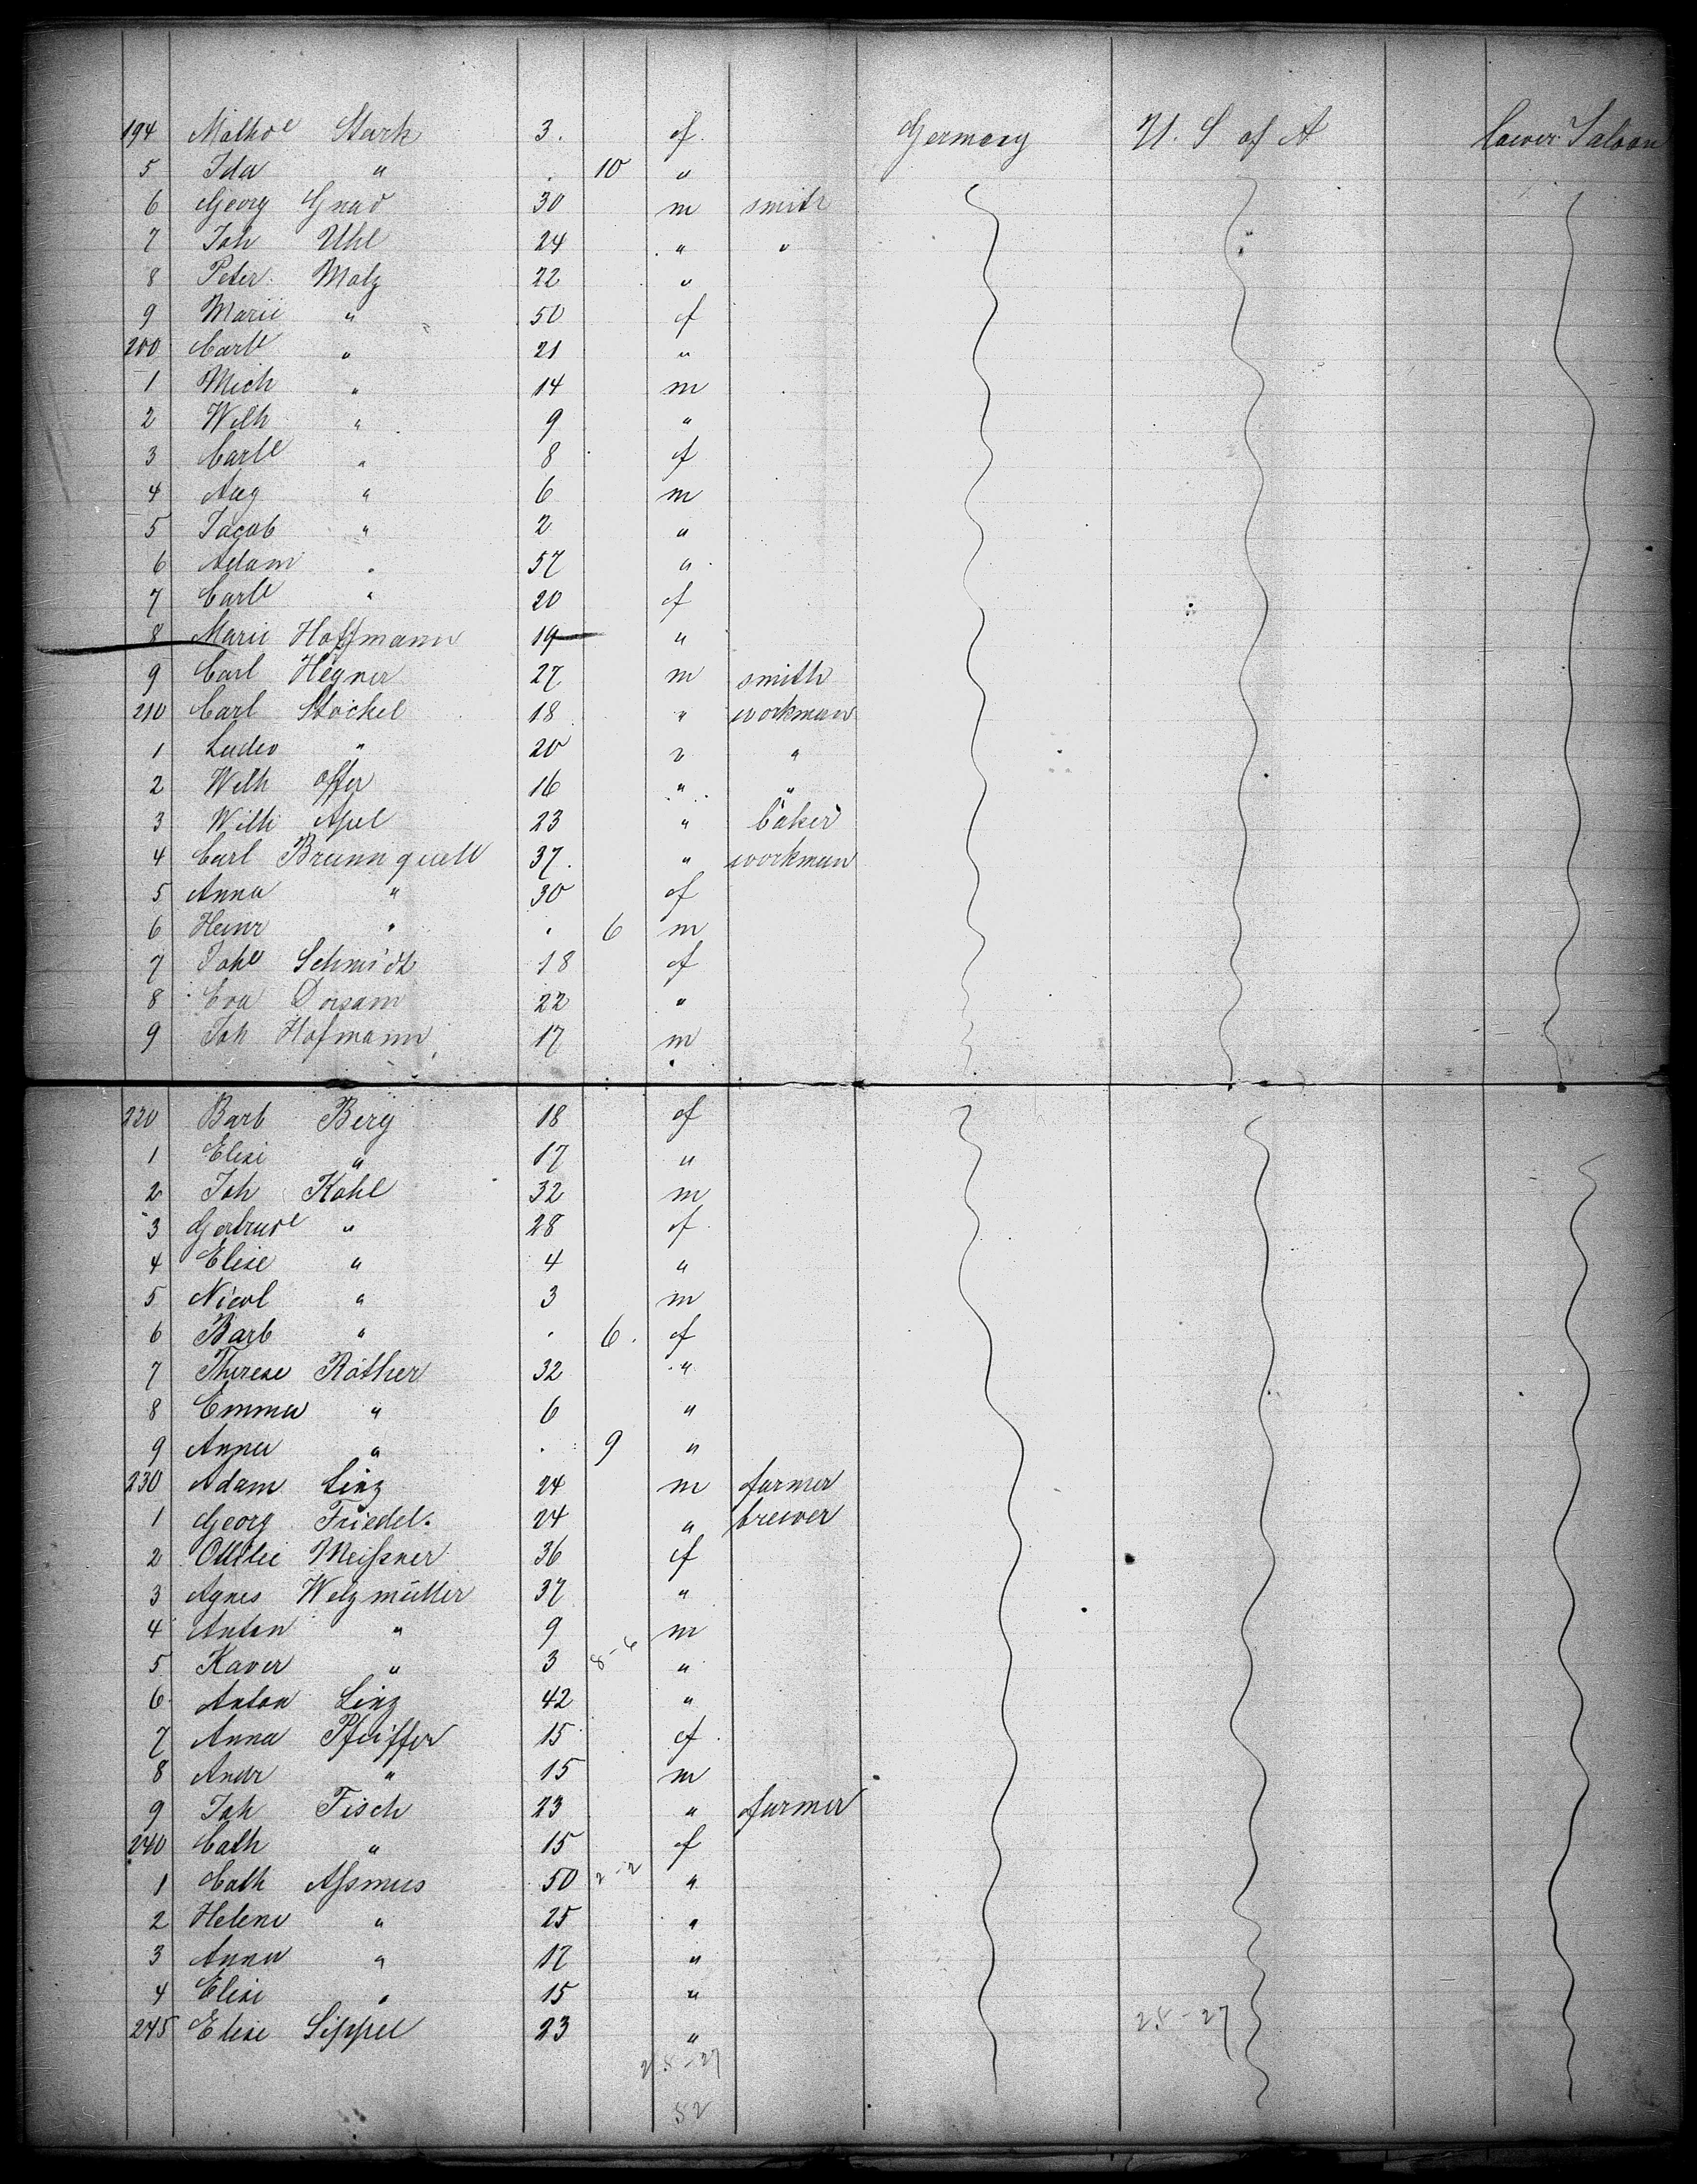 194 Mathde Stark 3. f. Germany U. S of A Lower Saloon
5 Ida " . 10 "
6 Georg Gnad 30 m smith
7 Joh Uhl 24 " "
8 Peter Malz 22 "
9 Marie " 50 f
200 Carle " 21 "
1 Mich " 14 m
2 Wilh " 9 "
3 Carle " 8 f
4 Aug " 6 m
5 Jacob " 2 "
6 Adam " 57 "
7 Carle " 20 f
8 Marie Hoffmann 19 "
9 Carl Hegner 27 m smith
210 Carl Stöckel 18 " workman
1 Ludw " 20 " "
2 Wilh 16 " "
3 Wilh Apel 23 " baker
4 Carl Brunnquell 37. " workman
5 Anna " 30 f
6 Heinr " . 6 m
7 Johe Schmidt 18 f
8 Eva Dörsam 22 "
9 Joh Hofmann 17 m
220 Barb Berg 18 f
1 Elise " 17 "
2 Joh Kohl 32 m
3 Gertrude " 28 f.
4 Elise " 4 "
5 Nicol " 3 m
6 Barb " . 6. f
7 Therese Röther 32 "
8 Emma " 6 "
9 Anna " . 9 "
230 Adam Linz 24 m farmer
1 Georg Friedel. 24 " brewer
2 Ottilie Meißner 36 f
3 Agnes Welzmüller 37 "
4 Anton " 9 m
5 Xaver " 3 8-6 "
6 Anton Linz 42 "
7 Anna Pfeiffer 15 f.
8 Andr " 15 m
9 Joh Fisch 23 " farmer
240 Cath " 15 f
1 Cath Aßmus 50 2-2 "
2 Helene " 25 "
3 Anna " 17 "
4 Elise " 15 "
245 Elise Sippel 23 " 25-27
25-27
52